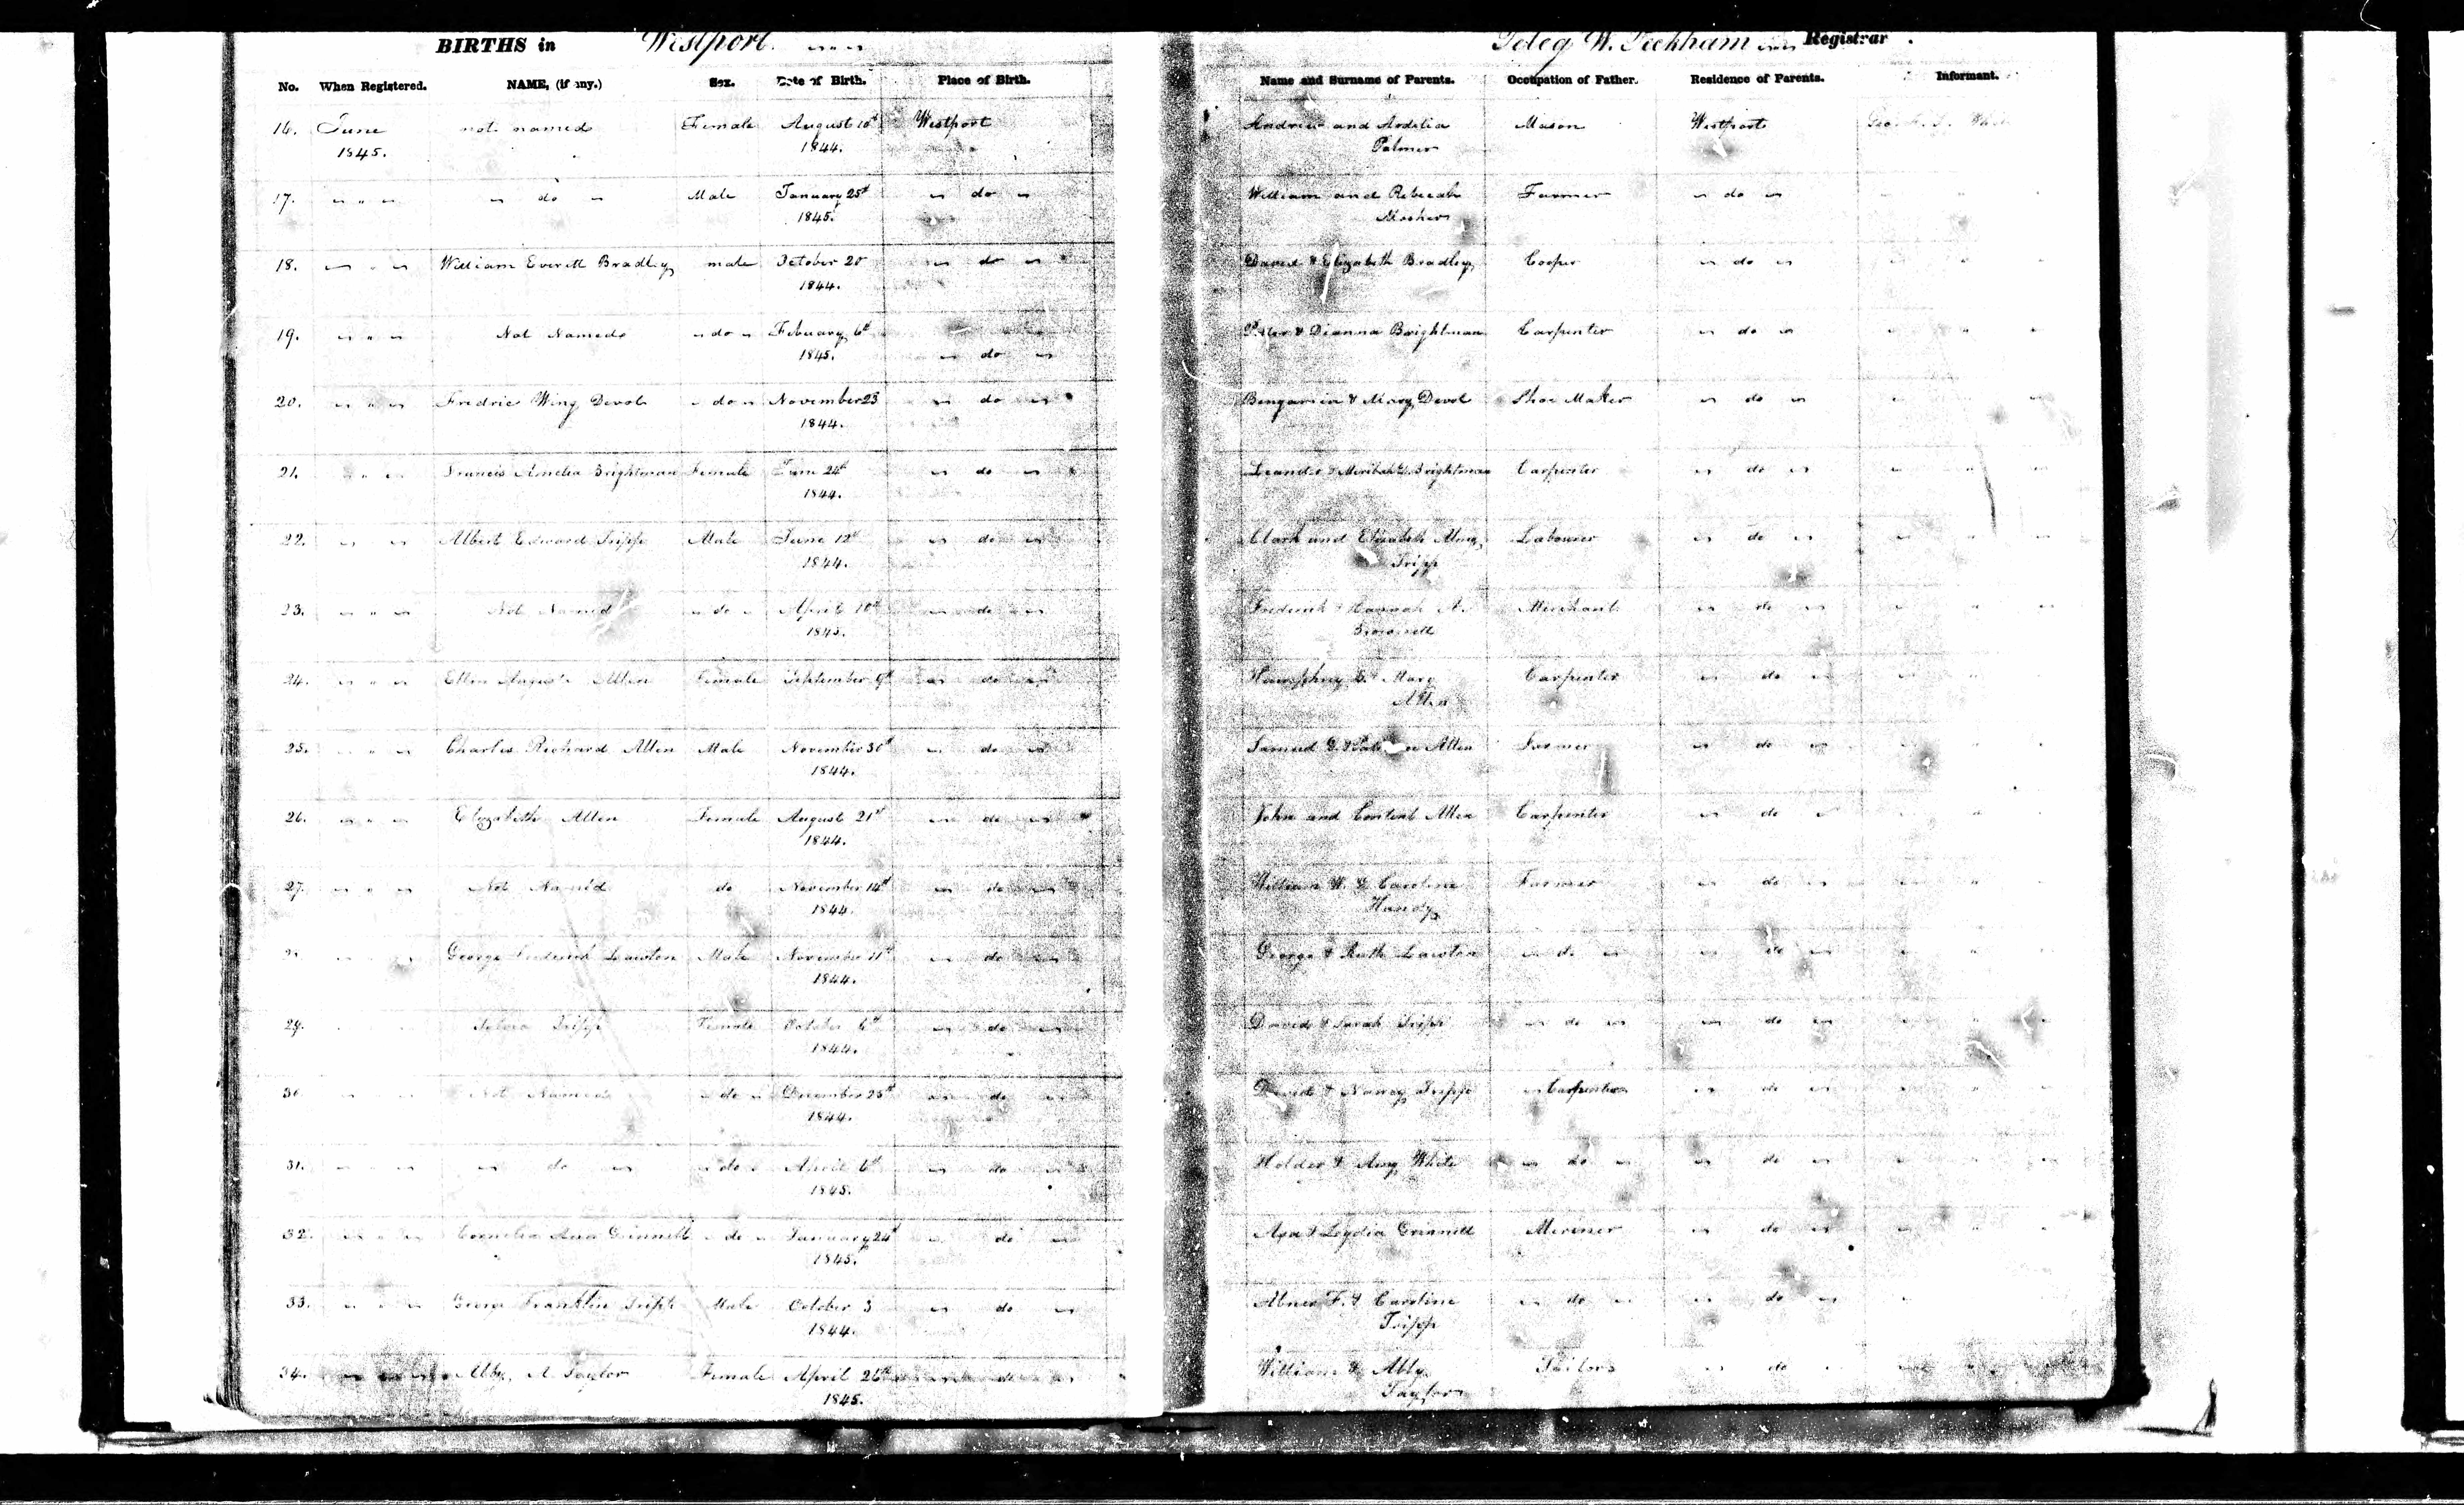 BIRTHS in Westport.
No. When Registered. NAME, (if any.) Sex. Date of Birth. Place of Birth.
16. June not named Female August 10th Westport
1845. 1844.
17. " " " " do " Male January 25th " do "
1845.
18. " " " William Everett Bradley male October 20 " do "
1844.
19. " " " Not Named " do " Febuary 6th
1845. " do "
20. " " " Fredric Wing Devol " do " November 23 " do "
1844.
21. " " " Francis Amelia Brightman Female June 24th " do "
1844.
22. " " Albert Edward Tripp Male June 12th " do "
1844.
23. " " " Not Named " do " April 10th " do "
1845.
24. " " " Ellen Augusta Allen Female September 9th " do "
25. " " " Charles Richard Allen Male November 30th " do "
1844.
26. " " " Elizabeth Allen Female August 21st " do "
1844.
27. " " " Not Named do November 14th " do "
1844.
George Frederick Lawton Male November 11th " do "
1844.
29. Tripp Female October 6th " do "
1844.
30 Not Named " do " December 25th " do "
1844.
31. " " " " do " " do " April 6th " do "
1845.
32. " " " Cornelia Ann Grinnell " do " January 24th " do "
1845.
33. " " " George Franklin Tripp Male October 3 " do "
1844.
34. " " " Abby A Taylor Female April 26th " do "
1845.
Peleg W. Peckham Registrar.
Name and Surname of Parents. Occupation of Father. Residence of Parents. Informant.
Andrew and Ardelia Mason Westport
Palmer
William and Rebecah Farmer " do "
Mosher
David & Elizabeth Bradley Cooper " do "
Peter & Dianna Brightman Carpenter " do "
Bengamin & Mary Devol Shoe Maker " do "
Leander & Meribah Brightman Carpenter " do "
Clark and Elizabeth Tripp Labourer " do "
Frederick & Hannah A. Merchant " do "
Brownell
Humphrey & Mary Carpenter " do "
Allen
Samuel Allen Farmer " do "
John and Content Allen Carpenter " do "
William W. & Caroline Farmer " do "
Handy
George & Ruth Lawton " do " " do "
David & Sarah Tripp " do " " do "
David & Nancy Tripp " Carpenter " do "
Holder & Amy White " do " " do "
Asa & Lydia Grinnell Meriner " do "
Abner F. & Caroline " do " " do "
Tripp
William & Abby Tailor " do "
Taylor